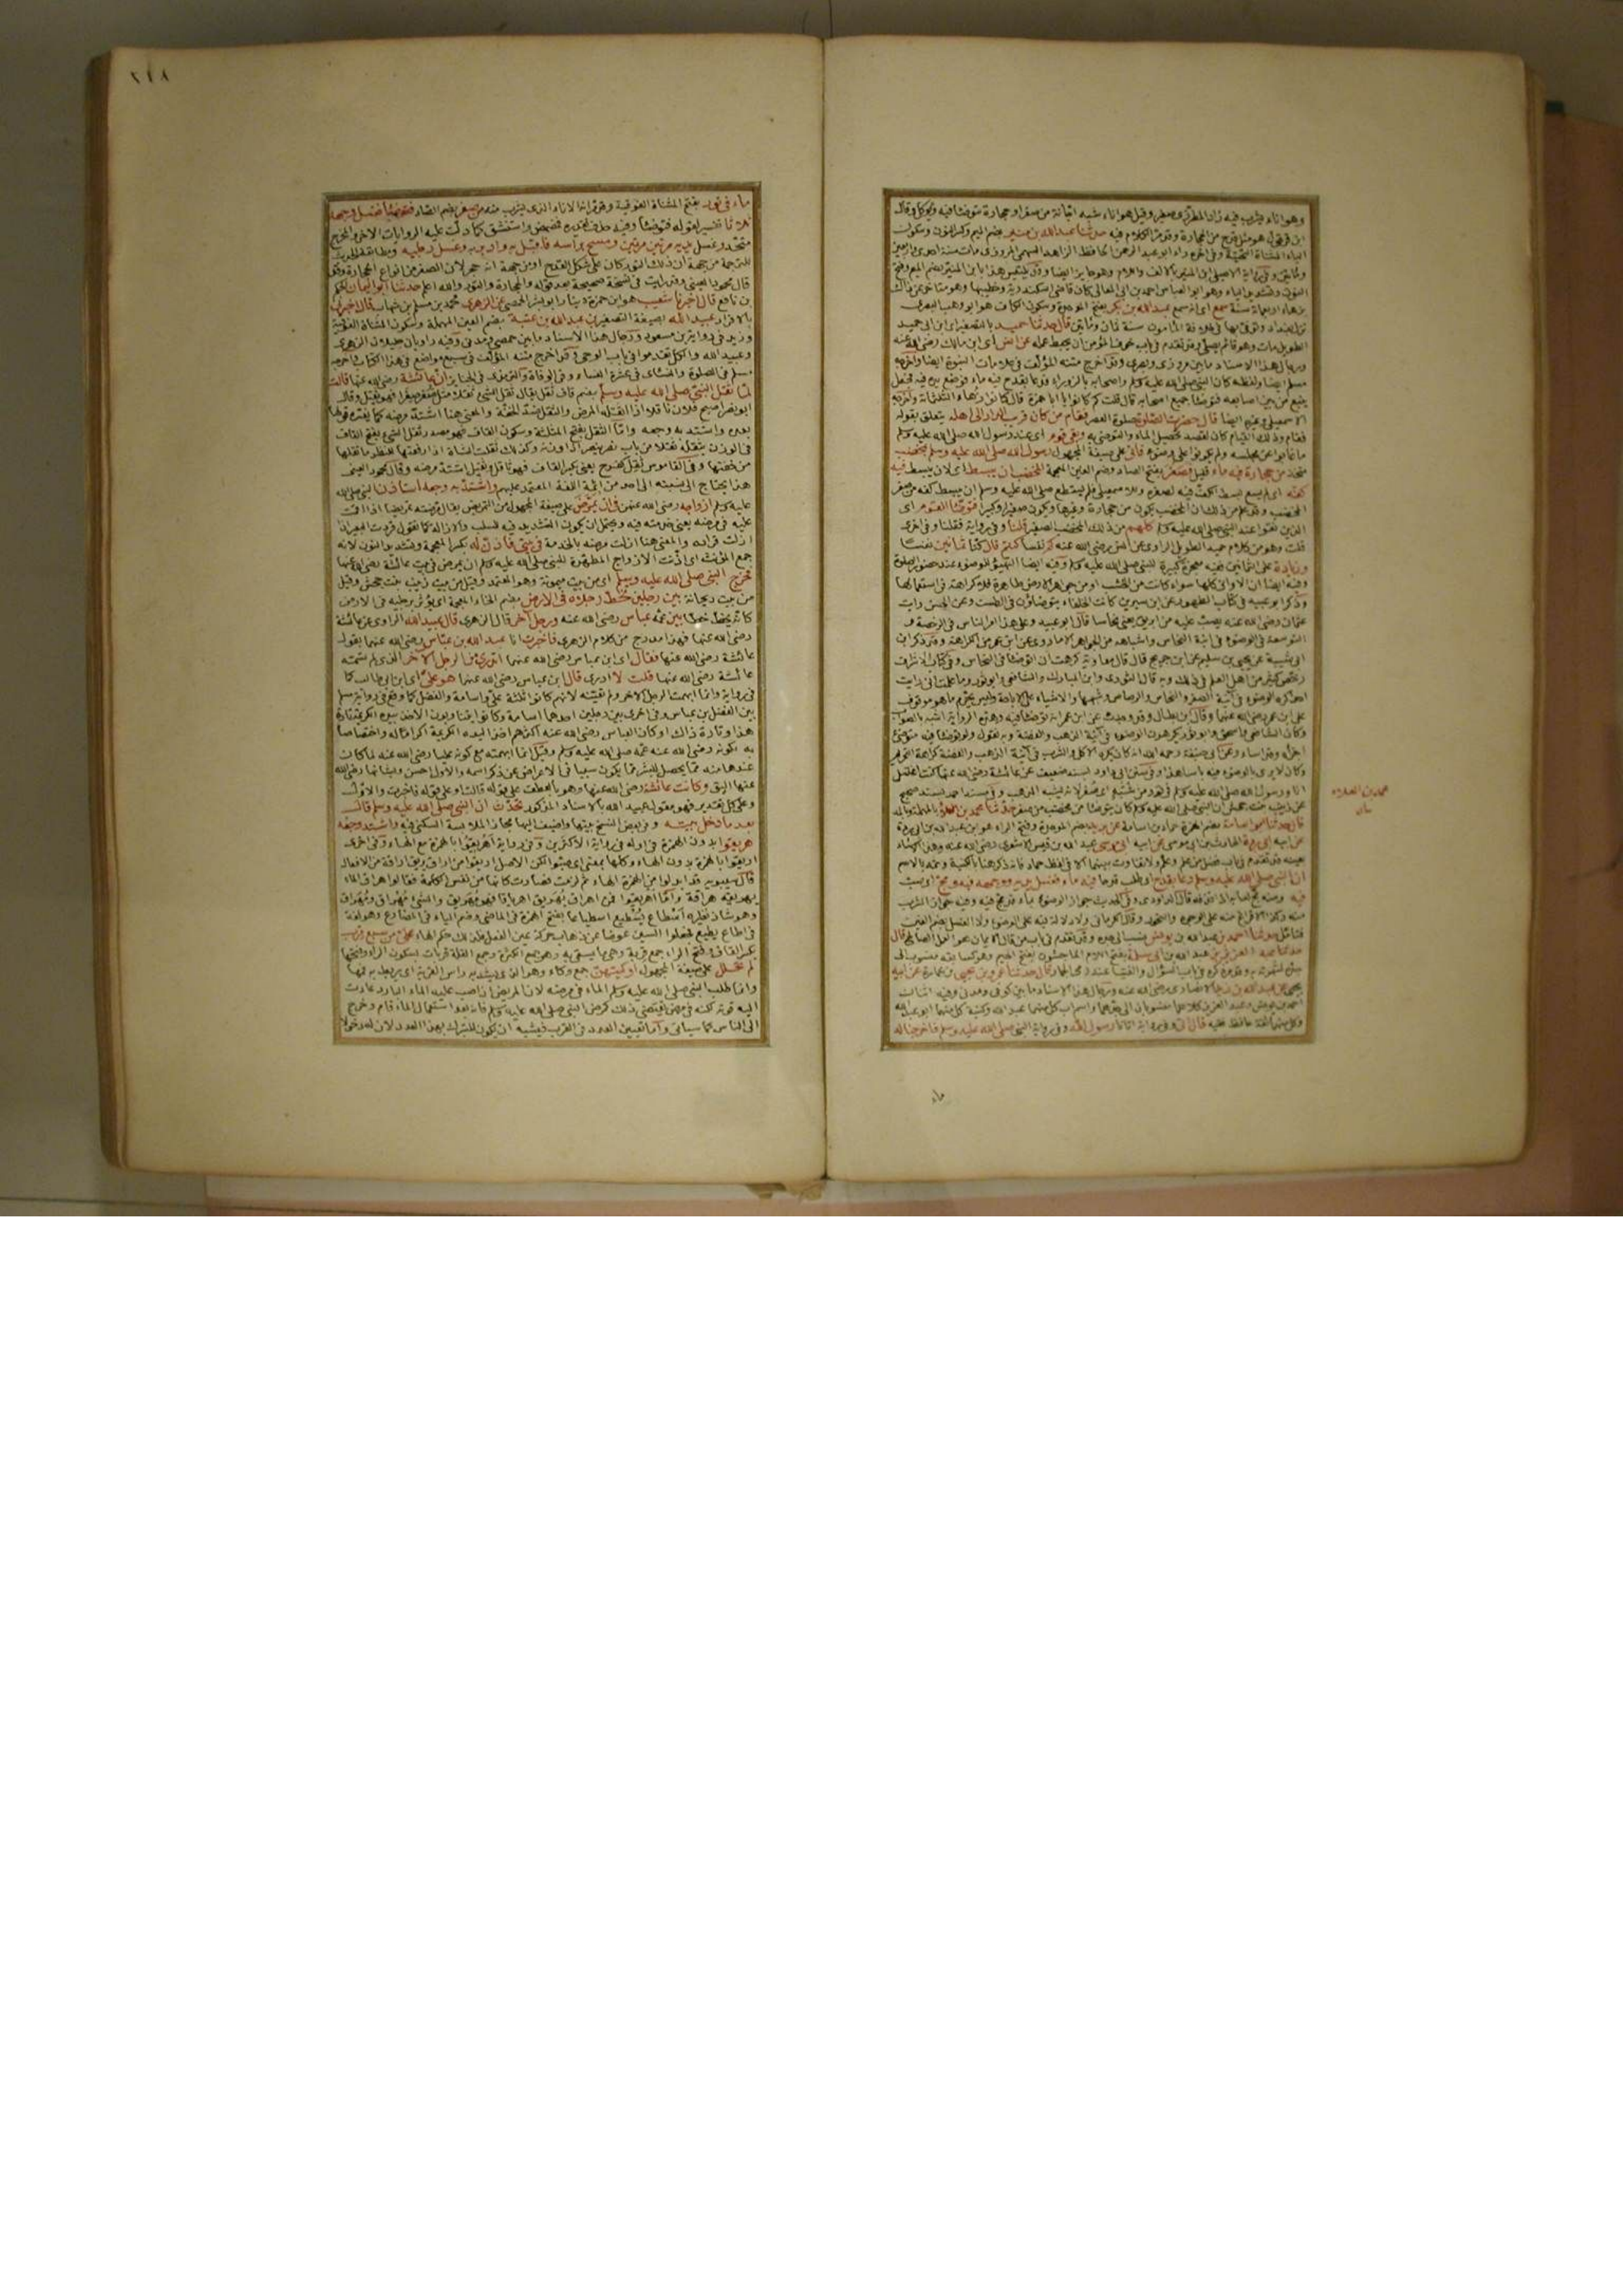 وهو اناء يشرب فيه زاد المطرزى صغير وقيل هو اناء شبه اجانة من صفر او حجارة يتوضأ فيه ويؤكل وقال
ابن قرقول هو مثل قدح من الحجارة وقد مر الكلام فيه حدثنا عبد الله بن منير بضم الميم وكسر النون وسكون
الياء المثناة التحتية وفى اخره راء ابو عبد الرحمن الحافظ الزاهد السهمى المروزى مات سنة احدى واربعين
النون وتشديد الياء وهو ابو العباس احمد بن ابى المعالى كان قاضى اسكندرية وخطيبها وهو متأخر عن ذلك
سمع اى انه سمع عبد الله بن بكر بفتح الموحدة وسكون الكاف هو ابو وهب البصرى
نزل بغداد وتوفى بها فى خلافة المأمون سنة ثمان ومأتين قال حدثنا حميد بالتصغير اى ابن ابى حميد
الطويل مات وهو قائم يصلى وقد تقدم فى باب خوف المؤمن ان يحبط عمله عن انس اى ابن مالك رضى الله عنه
ورجال هذا الاسناد ما بين مروزى وبصرى وقد اخرج متنه المؤلف فى علامات النبوة ايضا واخرجه
مسلم ايضا ولفظه كان النبى صلى الله عليه وسلم واصحابه بالزوراء فدعا بقدح فيه ماء فوضع يده فيه فجعل
ينبع من بين اصابعه فتوضأ جميع اصحابه قال قلت كم كانوا يا ابا حمزة قال كانوا زهاء الثلثمائة واخرجه
الاسمعيلى وغيره ايضا قال حضرت الصلوة صلوة العصر فقام من كان قريب الدار الى اهله يتعلق بقوله
فقام وذلك القيام كان لقصد تحصيل الماء والتوضى به وبقى قوم اى عند رسول الله صلى الله عليه وسلم
ما غابوا عن مجلسه ولم يكونوا على وضوء فاتى على صيغة المجهول رسول الله صلى الله عليه وسلم بمخضب
متخذ من حجارة فيه ماء قليل فصغر بفتح الصاد وضم الغين المعجمة المخضب ان يبسط اى لان يبسط فيه
كفه اى لم يسع لبسط الكف فيه لصغره وللاسمعيلى فلم يستطع صلى الله عليه وسلم ان يبسط كفه من صغر
المخضب وقد علم من ذلك ان المخضب يكون من حجارة وغيرها ويكون صغيرا وكبيرا فتوضأ القوم اى
الذين بقوا عند النبى صلى الله عليه وسلم كلهم من ذلك المخضب الصغير قلنا وفى رواية فقلنا وفى اخرى
قلت وهو من كلام حميد الطويل الراوى عن انس رضى الله عنه كم نفسا كنتم قال كنا ثمانين نفسا
وزيادة على الثمانين ففيه معجزة كبيرة للنبى صلى الله عليه وسلم وفيه ايضا التهيؤ للوضوء عند حضور الصلوة
وفيه ايضا ان الاوانى كلها سواء كانت من الخشب او من جواهر الارض طاهرة فلا كراهة فى استعمالها
وذكر ابو عبيد فى كتاب الطهور عن ابن سيرين كانت الخلفاء يتوضأون فى الطست وعن الحسن رأيت
عثمان رضى الله عنه يصب عليه من ابريق يعنى نحاسا قال ابو عبيد وعلى هذا امر الناس فى الرخصة و
التوسعة فى الوضوء فى انية النحاس واشباهه من الجواهر الا ما روى عن ابن عمر من الكراهة وقد ذكر ابن
ابى شيبة عن يحيى بن سليم عن ابن جريج قال قال معاوية كرهت ان اتوضأ فى النحاس وفى كتاب الاشراف
رخص كثير من اهل العلم فى ذلك وبه قال الثورى وابن المبارك والشافعى وابو ثور وما علمت انى رأيت
احدا كره الوضوء فى آنية الصفر والنحاس والرصاص وشبهها والاشياء على الاباحة وليس يحرم ما هو موقوف
على ابن عمر رضى الله عنهما وقال ابن بطال وقد وجدت عن ابن عمر انه توضأ فيه وهذه الرواية اشبه بالصواب
وكان الشافعى واسحق وابو ثور يكرهون الوضوء فى آنية الذهب والفضة وبه نقول ولو توضأ فيه متوضئ
اجزأه وقد اساء وعن ابى حنيفة رحمه الله انه كان يكره الاكل والشرب فى آنية الذهب والفضة كراهة التحريم
وكان لا يرى بالوضوء فيه بأسا هذا وفى سنن ابى داود بسند ضعيف عن عائشة رضى الله عنها كنت اغتسل
انا ورسول الله صلى الله عليه وسلم فى تور من شبه
عن زينب بنت جحش ان النبى صلى الله عليه وسلم كان يتوضأ من مخضب من صفر حدثنا محمد بن العلاء بالمهملة وبالمد
قال حدثنا ابو اسامة بضم الهمزة حماد بن اسامة عن بريد بضم الموحدة وفتح الراء هو ابن عبد الله بن ابى بردة
عن ابيه ابى بردة الحارث بن ابى موسى عن ابيه ابى موسى عبد الله بن قيس الاشعرى رضى الله عنه وهذا الاسناد
بعينه قد تقدم فى باب فضل من علم وعلم ولا تفاوت بينهما الا فى لفظ حماد فانه ذكر هنا بالكنية وثمه بالاسم
ان النبى صلى الله عليه وسلم دعا بقدح اى طلب قدحا فيه ماء فغسل يديه ووجهه فيه ومج اى صب
محمد بن العلاء
ماء
٢١٨
ماء فى تور بفتح المثناة الفوقية وقد مر انه الاناء الذى يشرب منه من صفر بضم الصاد فتوضأ فغسل وجهه
ثلاثا تفسير لقوله فتوضأ وفيه حذف تقديره فمضمض واستنشق كما دلت عليه الروايات الاخر والمخرج
متحد وغسل يديه مرتين مرتين ومسح برأسه فاقبل به وادبر به وغسل رجليه ومطابقة الحديث
للترجمة من جهة ان ذلك التور كان على شكل القدح او من جهة انه حجر لان الصفر من انواع الحجارة وقد
قال محمود العينى وقد رأيت فى نسخة صحيحة بعد قوله والحجارة والتور والله اعلم حدثنا ابو اليمان الحكم
بن نافع قال اخبرنا شعيب هو ابن حمزة دينار ابو بشر الحمصى عن الزهرى محمد بن مسلم بن شهاب قال اخبرنى
بالافراد عبيد الله بصيغة التصغير بن عبد الله بن عتبة بضم العين المهملة وسكون المثناة الفوقية
وزيد فى رواية بن مسعود ورجال هذا الاسناد ما بين حمصى ومدنى وفيه راويان جليلان الزهرى
وعبيد الله والكل تقدموا فى باب الوحى وقد اخرج متنه المؤلف فى سبع مواضع فى هذا الكتاب واخرجه
مسلم فى الصلوة والنسائى فى عشرة النساء وفى الوفاة والترمذى فى الجنائز ان عائشة رضى الله عنها قالت
لما ثقل النبى صلى الله عليه وسلم بضم قاف ثقل يقال ثقل الشئ ثقلا مثل صغر صغرا فهو ثقيل وقال
ابو نصر اصبح فلان ثاقلا اذا اثقله المرض والثقل ضد الخفة والمعنى هنا اشتد مرضه كما يفسره قولها
بعده واشتد به وجعه واما الثقل بفتح المثلثة وسكون القاف فهو مصدر ثقل الشئ بفتح القاف
فى الوزن يثقله ثقلا من باب نصر ينصر اذا وزنه وكذلك ثقلت الشاة اذا رفعتها للنظر ما ثقلها
من خفتها وفى القاموس ثقل كفرح يعنى بكسر القاف فهو ثاقل وثقيل اشتد مرضه وقال محمود العينى
هذا يحتاج الى نسبته الى احد من ائمة اللغة المعتمد عليهم واشتد به وجعه استأذن النبى صلى الله
عليه وسلم ازواجه رضى الله عنهن فى ان يمرض على صيغة المجهول من التمريض يقال مرضته تمريضا اذا اقمت
عليه فى مرضه يعنى خدمته فيه ويحتمل ان يكون التشديد فيه للسلب والازالة كما تقول قردت البعير اذا
ازلت قراده والمعنى هنا ازلت مرضه بالخدمة فى بيتى فاذن له بكسر المعجمة وتشديد النون لانه
جمع المؤنث اى اذنت الازواج المطهرة للنبى صلى الله عليه وسلم ان يمرض فى بيت عائشة رضى الله عنها
فخرج النبى صلى الله عليه وسلم اى من بيت ميمونة وهو المعتمد وقيل من بيت زينب بنت جحش وقيل
من بيت ريحانة بين رجلين تخط رجلاه فى الارض بضم الخاء المعجمة اى يؤثر برجليه فى الارض
كانه يخط خطا بين عمه عباس رضى الله عنه ورجل آخر قال الزهرى قال عبيد الله الراوى عن عائشة
رضى الله عنها فهذا مدرج من كلام الزهرى فاخبرت انا عبد الله بن عباس رضى الله عنهما بقول
عائشة رضى الله عنها فقال اى ابن عباس رضى الله عنهما اتدرى من الرجل الاخر الذى لم تسمه
عائشة رضى الله عنها قلت لا ادرى قال ابن عباس رضى الله عنهما هو على اى ابن ابى طالب كما
فى رواية وانما ابهمت الرجل الاخر ولم تعينه لانهم كانوا ثلثة على واسامة والفضل كما وقع فى رواية مسلم
بين الفضل بن عباس وفى اخرى بين رجلين احدهما اسامة وكانوا يتناوبون الاخذ بيده الكريمة تارة
هذا وتارة ذاك او كان العباس رضى الله عنه اكثرهم اخذ اليده الكريمة اكراما له واختصاصا
به لكونه رضى الله عنه عمه صلى الله عليه وسلم وقيل انما ابهمته مع كونه عليا رضى الله عنه لما كان
عندها منه مما يحصل للبشر مما يكون سببا فى الاعراض عن ذكر اسمه والاول احسن وبشأنها رضى الله
عنها اليق وكانت عائشة رضى الله عنها وهو بالعطف على قوله قالت او على قوله فاخبرت والاول
وعلى كل تقدير فهو مقول عبيد الله بالاسناد المذكور تحدث ان النبى صلى الله عليه وسلم قال
بعد ما دخل بيته وفى بعض النسخ بيتها واضيف اليها مجازا لملابسة السكنى فيه واشتد وجعه
هريقوا بدون الهمزة فى اوله فى رواية الاكثرين وفى رواية اهريقوا بالهمزة مع الهاء وفى اخرى
اريقوا بالهمزة بدون الهاء وكلها بمعنى اى صبوا لكن الاصل اريقوا من اراق يريق اراقة من الافعال
قال سيبويه قد ابدلوا من الهمزة الهاء ثم لزمت فصارت كانها من نفس الكلمة فقالوا هراق الماء
يهريقه هراقة واما اهريقوا فمن اهراق يهريق اهرياقا فهو مهريق والشئ مهراق ومهراق
وهو شاذ نظيره اسطاع يسطيع اسطياعا بفتح الهمزة فى الماضى وضم الياء فى المضارع وهو لغة
فى اطاع يطيع فجعلوا السين عوضا عن ذهاب حركة عين الفعل فكذلك حكم الهاء على من سبع قرب
بكسر القاف وفتح الراء جمع قربة وهى ما يستقى به وهو جمع الكثرة وجمع القلة قربات بسكون الراء وفتحها
لم تحلل على صيغة المجهول اوكيتهن جمع وكاء وهو الذى يشد به رأس القربة اى يربط به فمها
وانما طلب النبى صلى الله عليه وسلم الماء فى مرضه لان المريض اذا صب عليه الماء البارد عادت
اليه قوته لكنه فى مرض يقتضى ذلك كمرض النبى صلى الله عليه وسلم فانه بعد استعمال الماء قام وخرج
الى الناس كما سيأتى واما تعيين العدد فى القرب فيشبه ان يكون للتبرك بهذا العدد لان له دخولا